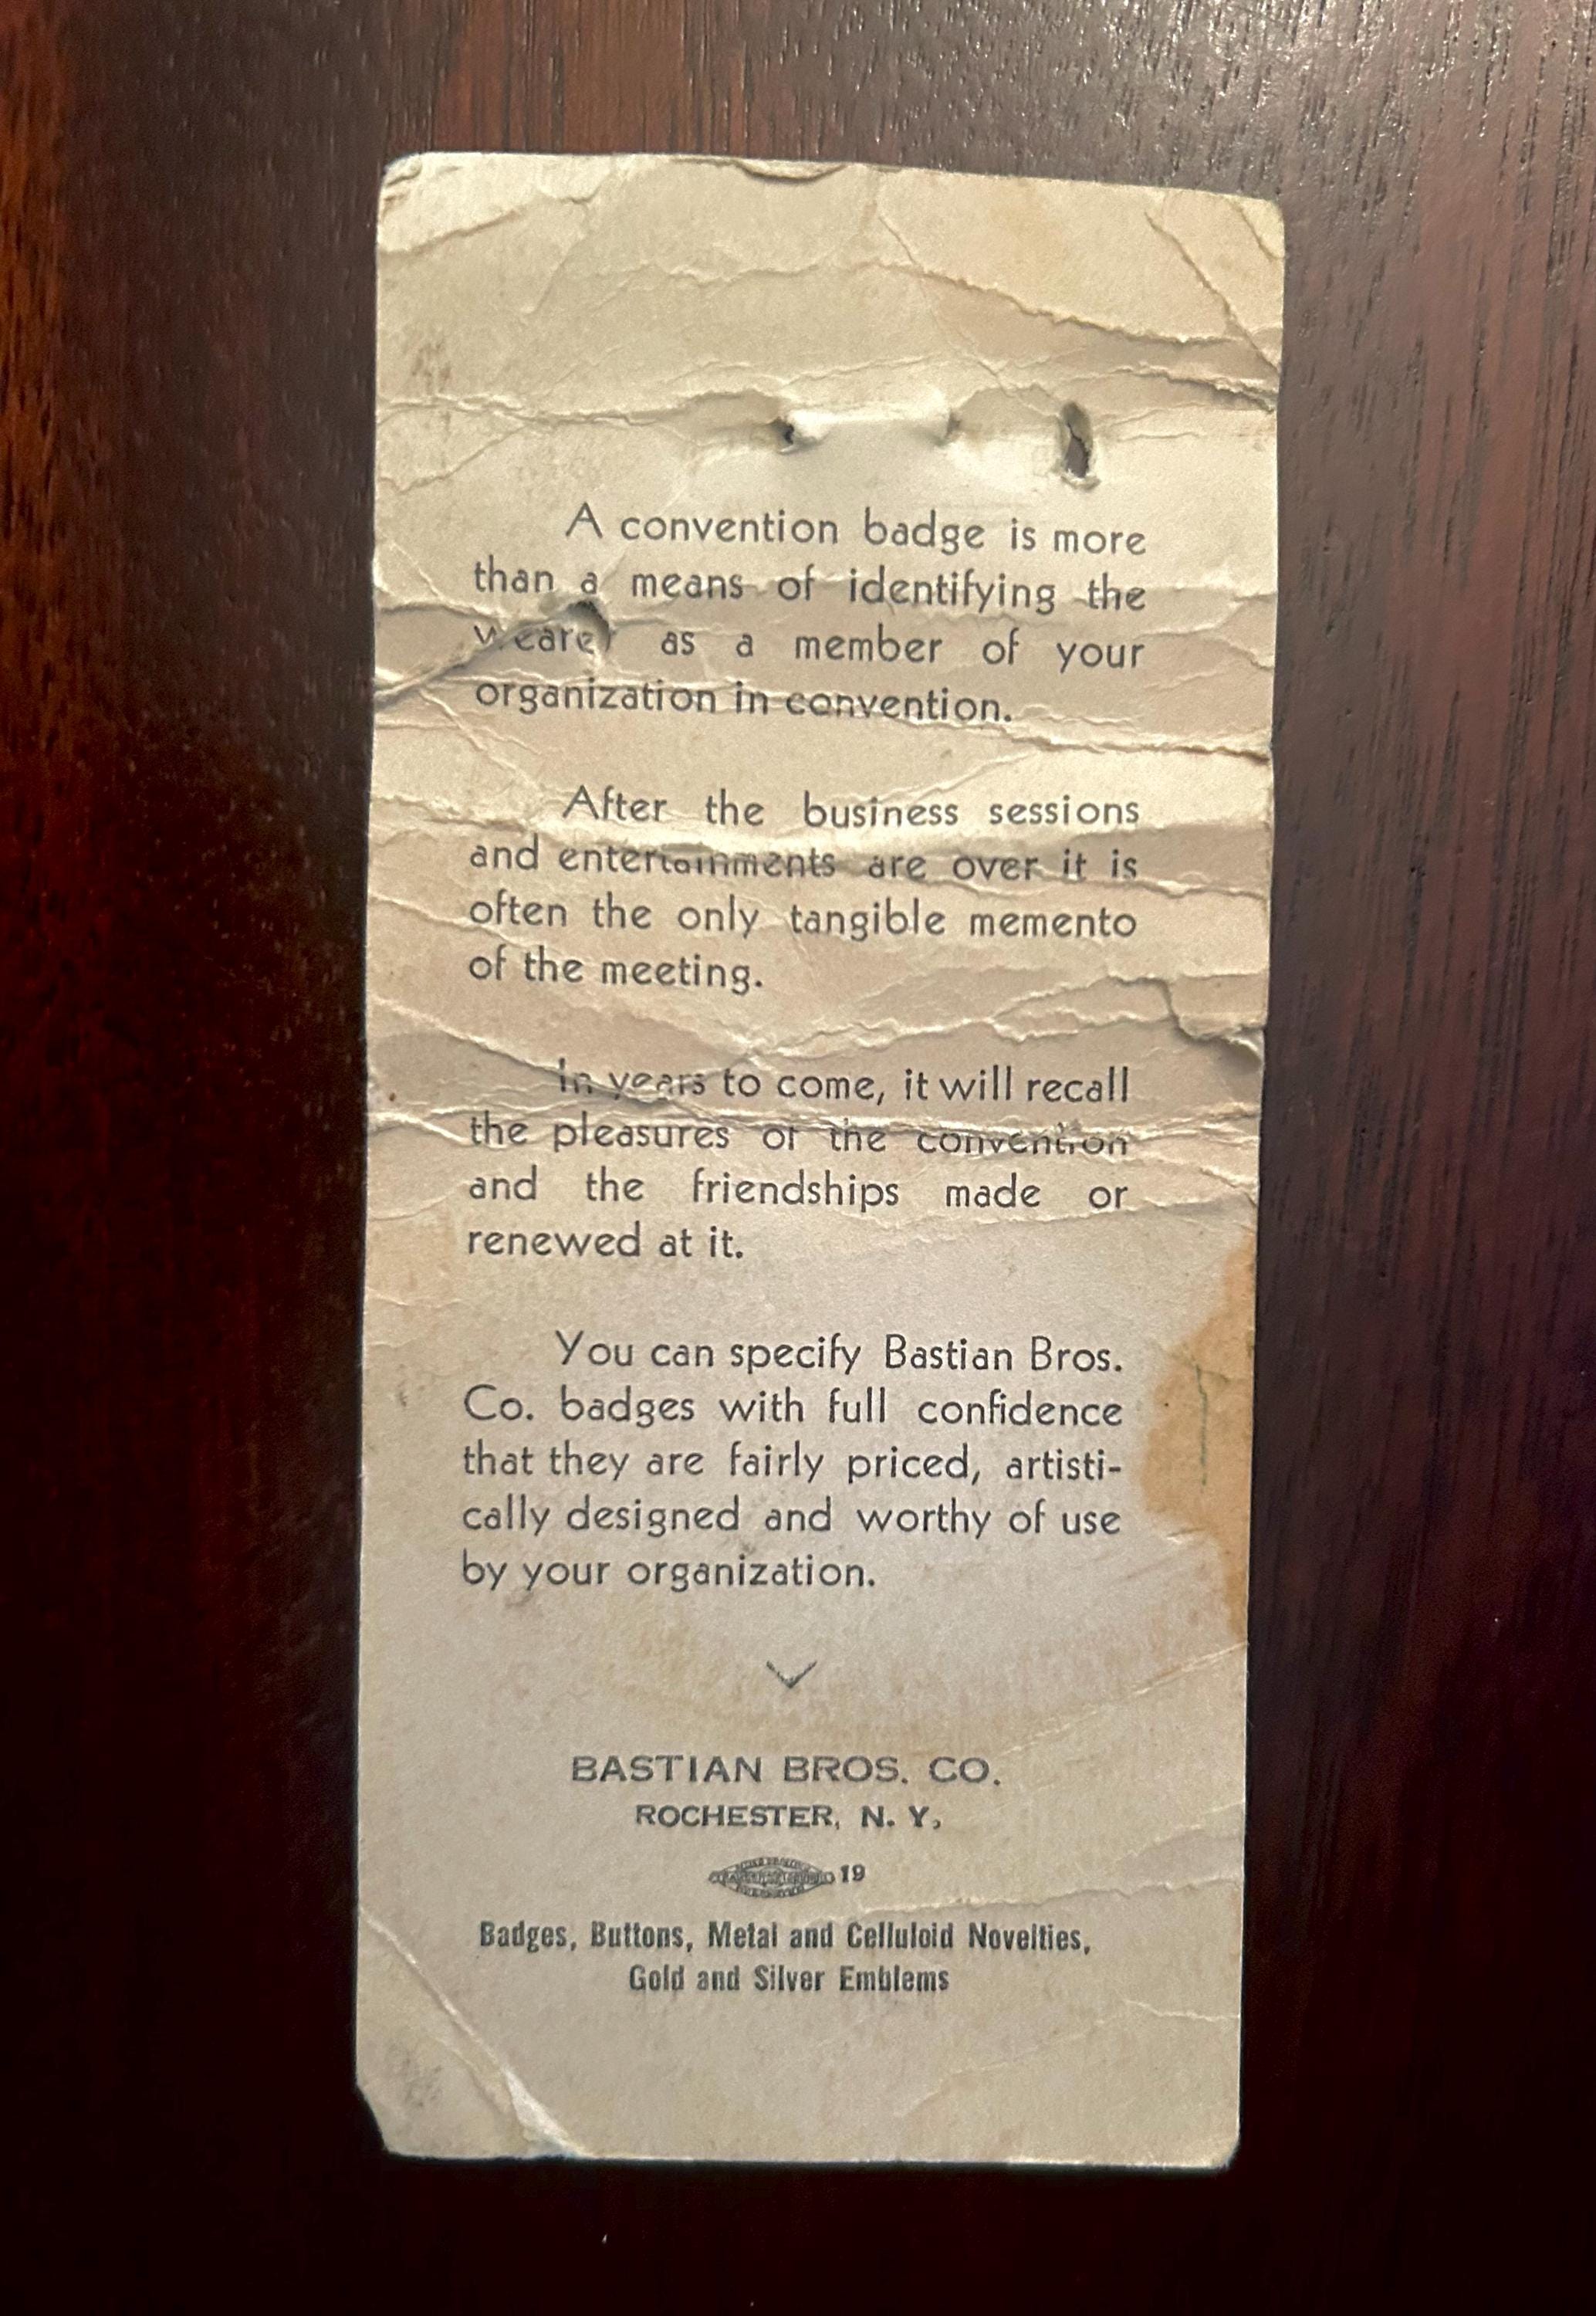 A convention badge is more
than a means of identifying the
wearer as a member of your
organization in convention.
After the business sessions
and entertainments are over it is
often the only tangible memento
of the meeting.
In years to come, it will recall
the pleasures of the convention
and the friendships made or
renewed at it.
You can specify Bastian Bros.
Co. badges with full confidence
that they are fairly priced, artisti-
cally designed and worthy of use
by your organization.
BASTIAN BROS. CO.
ROCHESTER, N. Y.
19
Badges, Buttons, Metal and Celluloid Novelties,
Gold and Silver Emblems